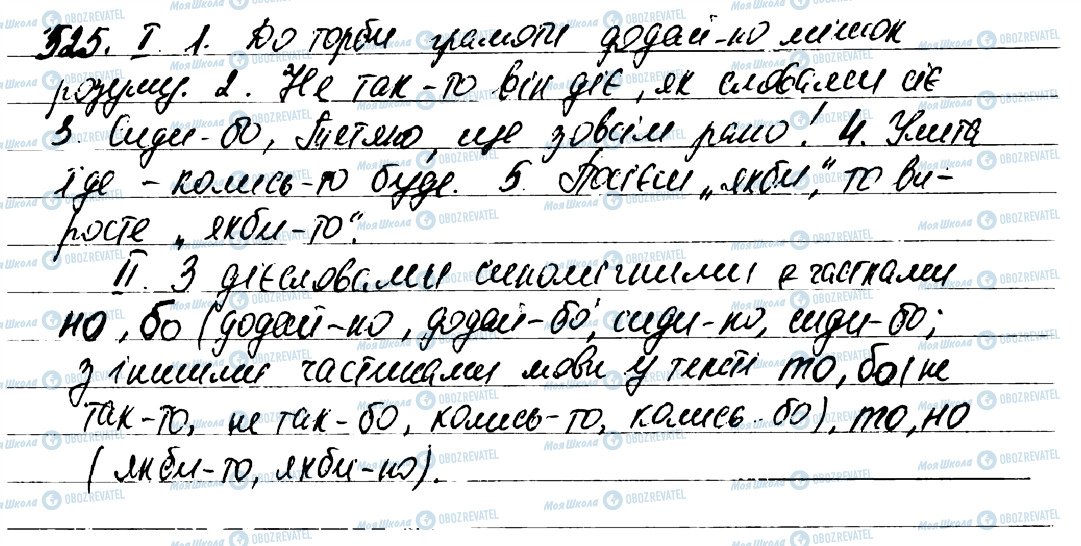 525. I. 1. До торби грамоти додай-но мішок
розуму. 2. Не так-то він діє, як словами сіє
3. Сиди-бо, Тетяно, ще зовсім рано! 4. Улита
їде - колись-то буде. 5. Посієш „якби", то ви-
росте „якби-то".
II. З дієсловами синонімічними є частками
но, бо (додай-но, додай-бо; сиди-но, сиди-бо;
з іншими частинами мови у тексті то, бо (не
так-то, не так-бо, колись-то, колись-бо), то, но
(якби-то, якби-но).